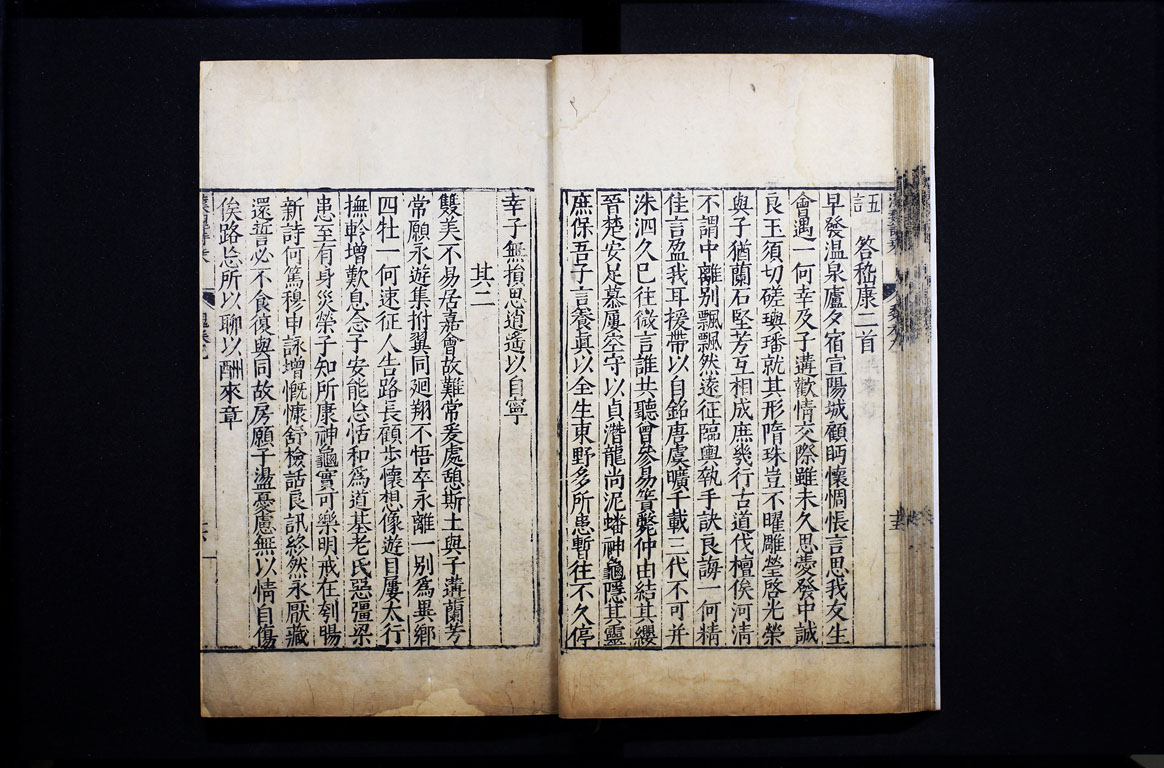 五言
答嵇康二首
早發温泉廬夕宿宣陽城顧眄懷惆悵言思我友生
會遇一何幸及子遘歡情交際雖未久思愛發中誠
良玉須切磋璵璠就其形隋珠豈不曜雕瑩啓光榮
與子猶蘭石堅芳互相成庶幾行古道伐檀俟河清
不謂中離别飄飄然遠征臨輿執手訣良誨一何精
佳言盈我耳援帶以自銘唐虞曠千載三代不可并
洙泗久已往微言誰共聽曾參易簀斃仲由結其纓
晉楚安足慕屢空守以貞潛龍尚泥蟠神龜隱其靈
庶保吾子言養真以全生東野多所患暫往不久停
幸子無損思逍遙以自寧
其二
雙美不易居嘉會故難常爰處憩斯土與子遘蘭芳
常願永遊集拊翼同廻翔不悟卒永離一别爲異鄉
四牡一何速征人告路長顧步懷想像遊目屢太行
撫軨增歎息念子安能忘恬和爲道基老氏惡彊梁
患至有身災榮子知所康神龜實可樂明戒在刳腸
新詩何篤穆申詠增慨慷舒檢詁良訊終然永厭藏
還誓必不食復與同故房願子盪憂慮無以情自傷
俟路忘所以聊以酬來章